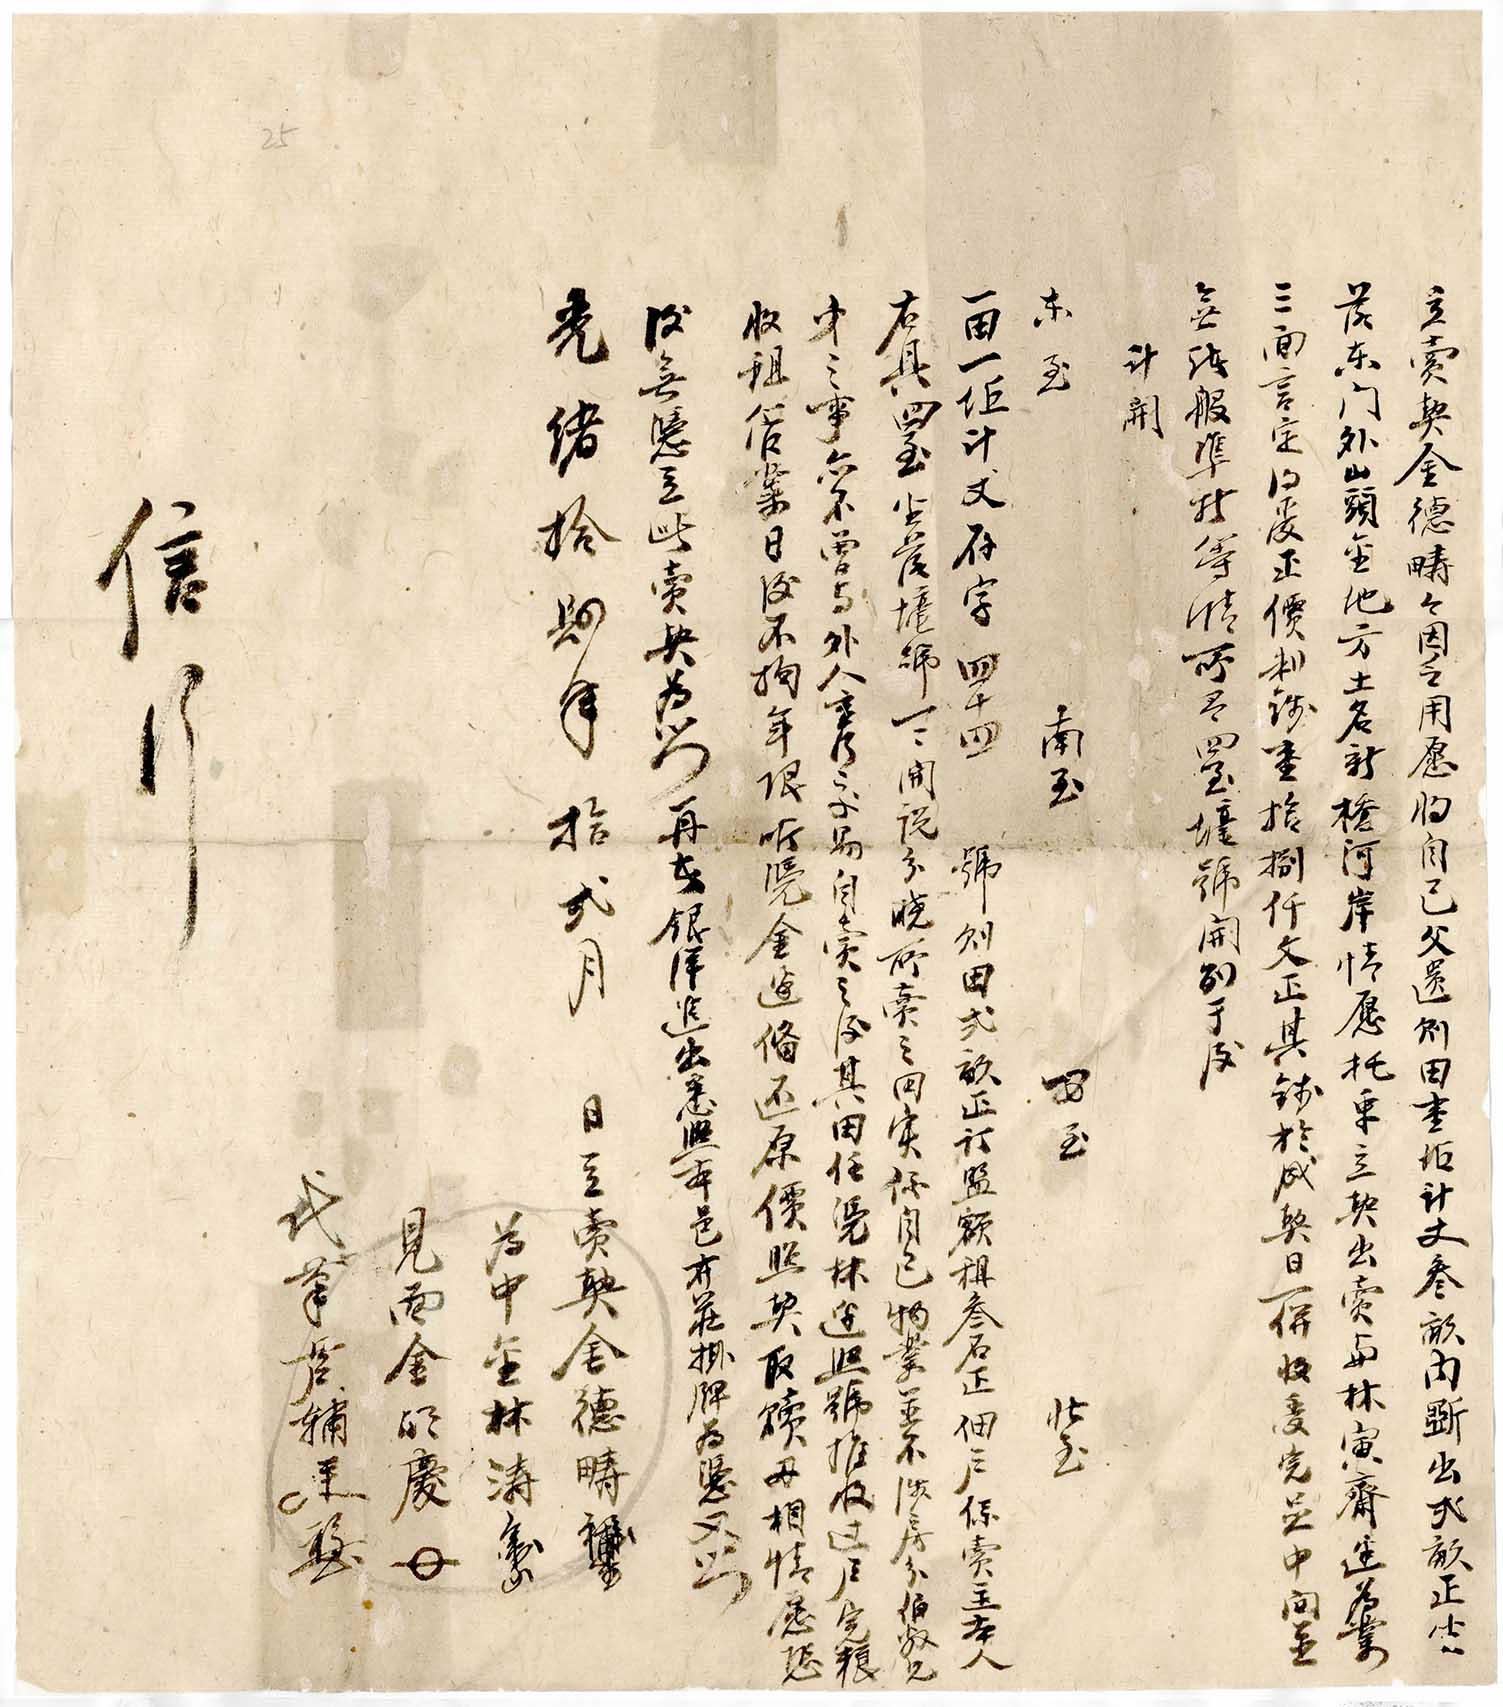 立賣契金德疇今因乏用愿將自己父遺則田壹坵計丈叁畝內斷出弍畝正坐
落東门外山頭金地方土名新橋河岸情愿托中立契出賣与林寅齋邊為業
三面言定得受正價制錢壹拾捌仟文正其錢於成契日一併收受完足中间並
無注般準折等情所有四至壗號開列于后
计開
東至 南至 西至 北至
一田一坵计丈府字四十四 號則田弍畝正计監額租叁石正佃户係賣主本人
右具四至坐落壗號一一開説分晓所賣之田实係自己物業並不涉房分伯叔兄
弟之事亦不曾与外人重行交易自賣之後其田任凭林边照號推收过户完粮
收租管業日後不拘年限听凭金边俻还原價照契取贖毋相情愿恐
後無憑立此賣契為照 再支銀洋進出悉照本邑有莊掛牌為憑又照
光緒拾 年拾弍月 日立賣契金德疇
為中金林濤
見面金 慶
代筆 輔
信行
25